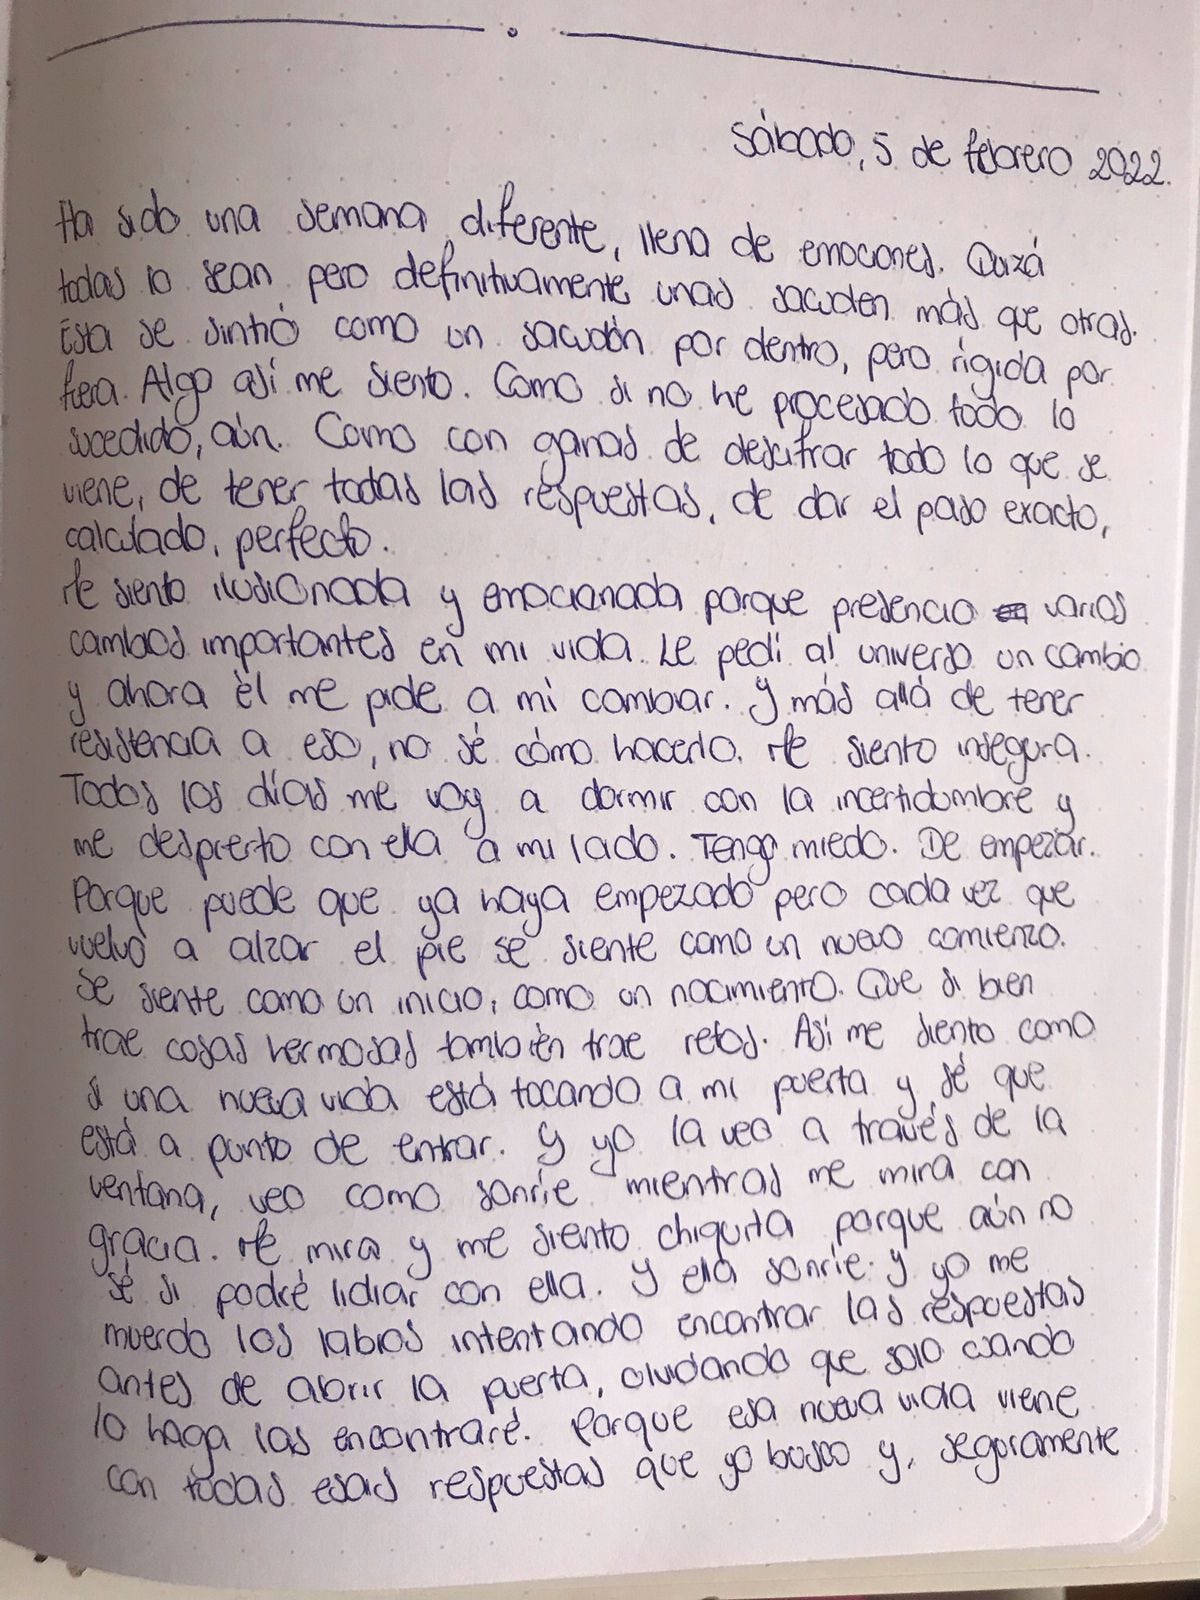 Sábado, 5 de febrero 2022.
Ha sido una semana diferente, llena de emociones. Quizá
todas lo sean pero definitivamente unas sacuden más que otras.
Esta se sintió como un sacudón por dentro, pero rígida por
fuera. Algo así me siento. Como si no he procesado todo lo
sucedido, aún. Como con ganas de descifrar todo lo que se
viene, de tener todas las respuestas, de dar el paso exacto,
calculado, perfecto.
Me siento ilusionada y emocionada porque presencio varios
cambios importantes en mi vida. Le pedí al universo un cambio
y ahora él me pide a mi cambiar. Y más allá de tener
resistencia a eso, no sé cómo hacerlo. Me siento insegura.
Todos los días me voy a dormir con la incertidumbre y
me despierto con ella a mi lado. Tengo miedo. De empezar.
Porque puede que ya haya empezado pero cada vez que
vuelvo a alzar el pie se siente como un nuevo comienzo.
Se siente como un inicio, como un nacimiento. Que si bien
trae cosas hermosas también trae retos. Así me siento como
si una nueva vida está tocando a mi puerta y sé que
está a punto de entrar. Y yo la veo a través de la
ventana, veo como sonríe mientras me mira con
gracia. Me mira y me siento chiquita porque aún no
sé si podré lidiar con ella. Y ella sonríe. Y yo me
muerdo los labios intentando encontrar las respuestas
antes de abrir la puerta, olvidando que solo cuando
lo haga las encontraré. Porque esa nueva vida viene
con todas esas respuestas que yo busco y, seguramente